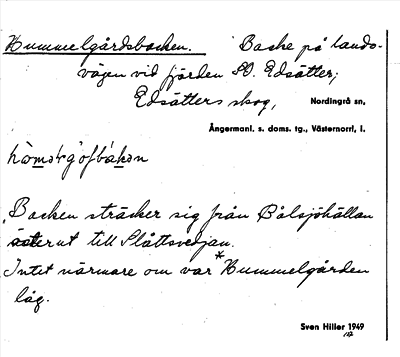 Hummelgårdsbacken. Backe på lands-
vägen vid fjärden SO. Edsätter;
Edsätters skog, Nordingrå sn,
Ångermanl. s. doms. tg., Västernorrl, l.
Backen sträcker sig från Bålsjöhällan
österut till Slåttsvedjan.
Intet närmare om var *Hummelgården
låg.
Sven Hiller 1949